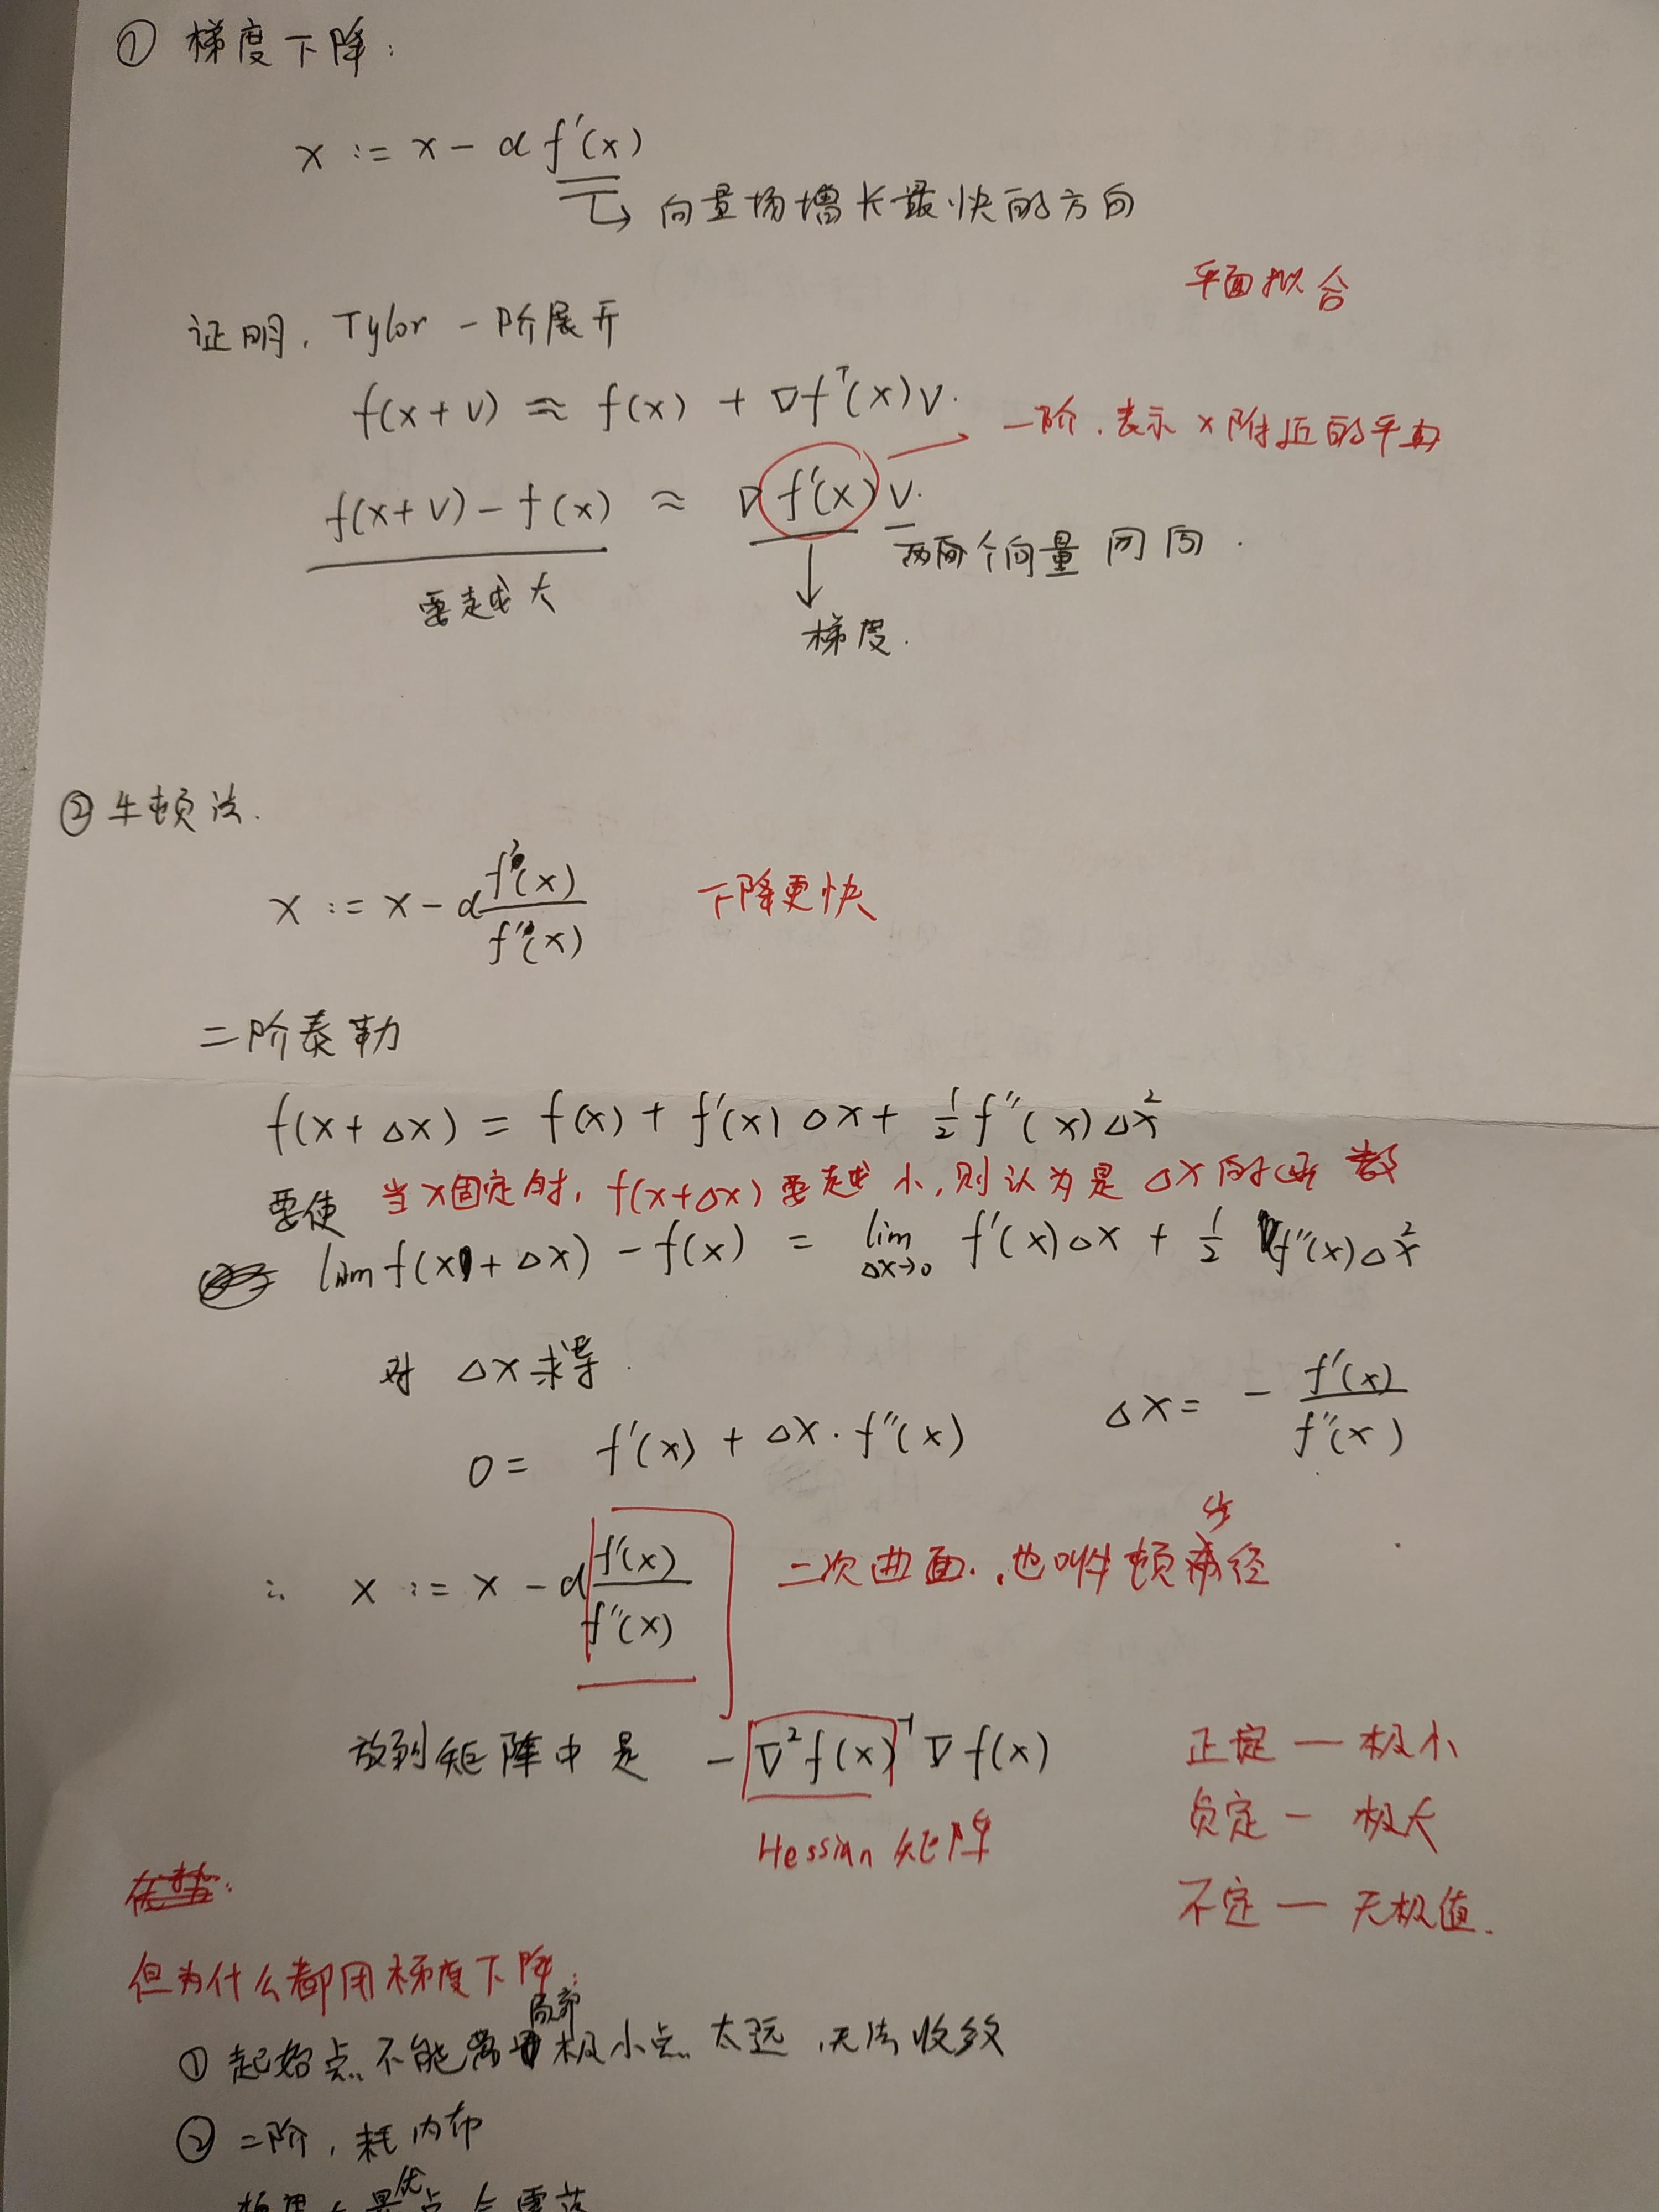 ① 梯度下降:
x := x - α f'(x)
向量场增长最快的方向
平面拟合
证明, Tylor 一阶展开
f(x+v) ≈ f(x) + ∇f^T(x)v.
一阶. 表示 x 附近的平面
f(x+v) - f(x) ≈ ∇f'(x) v.
两个向量同向.
要越大
梯度.
② 牛顿法.
x := x - α f'(x)/f''(x) 下降更快
二阶泰勒
f(x+Δx) = f(x) + f'(x)Δx + 1/2 f''(x)Δx²
要使 当x固定时, f(x+Δx)要越小, 则认为是Δx的函数
lim f(x+Δx) - f(x) = lim Δx→0 f'(x)Δx + 1/2 f''(x)Δx²
对 Δx求导.
0 = f'(x) + Δx · f''(x) Δx = - f'(x)/f''(x)
∴ x := x - α f'(x)/f''(x) 二次曲面., 也叫牛顿步径
放到矩阵中是 - ∇²f(x)⁻¹ ∇f(x)
Hessian 矩阵
正定 — 极小
负定 — 极大
不定 — 无极值.
但为什么都用梯度下降:
① 起始点不能离局部极小点太远, 无法收敛
② 二阶, 耗内存